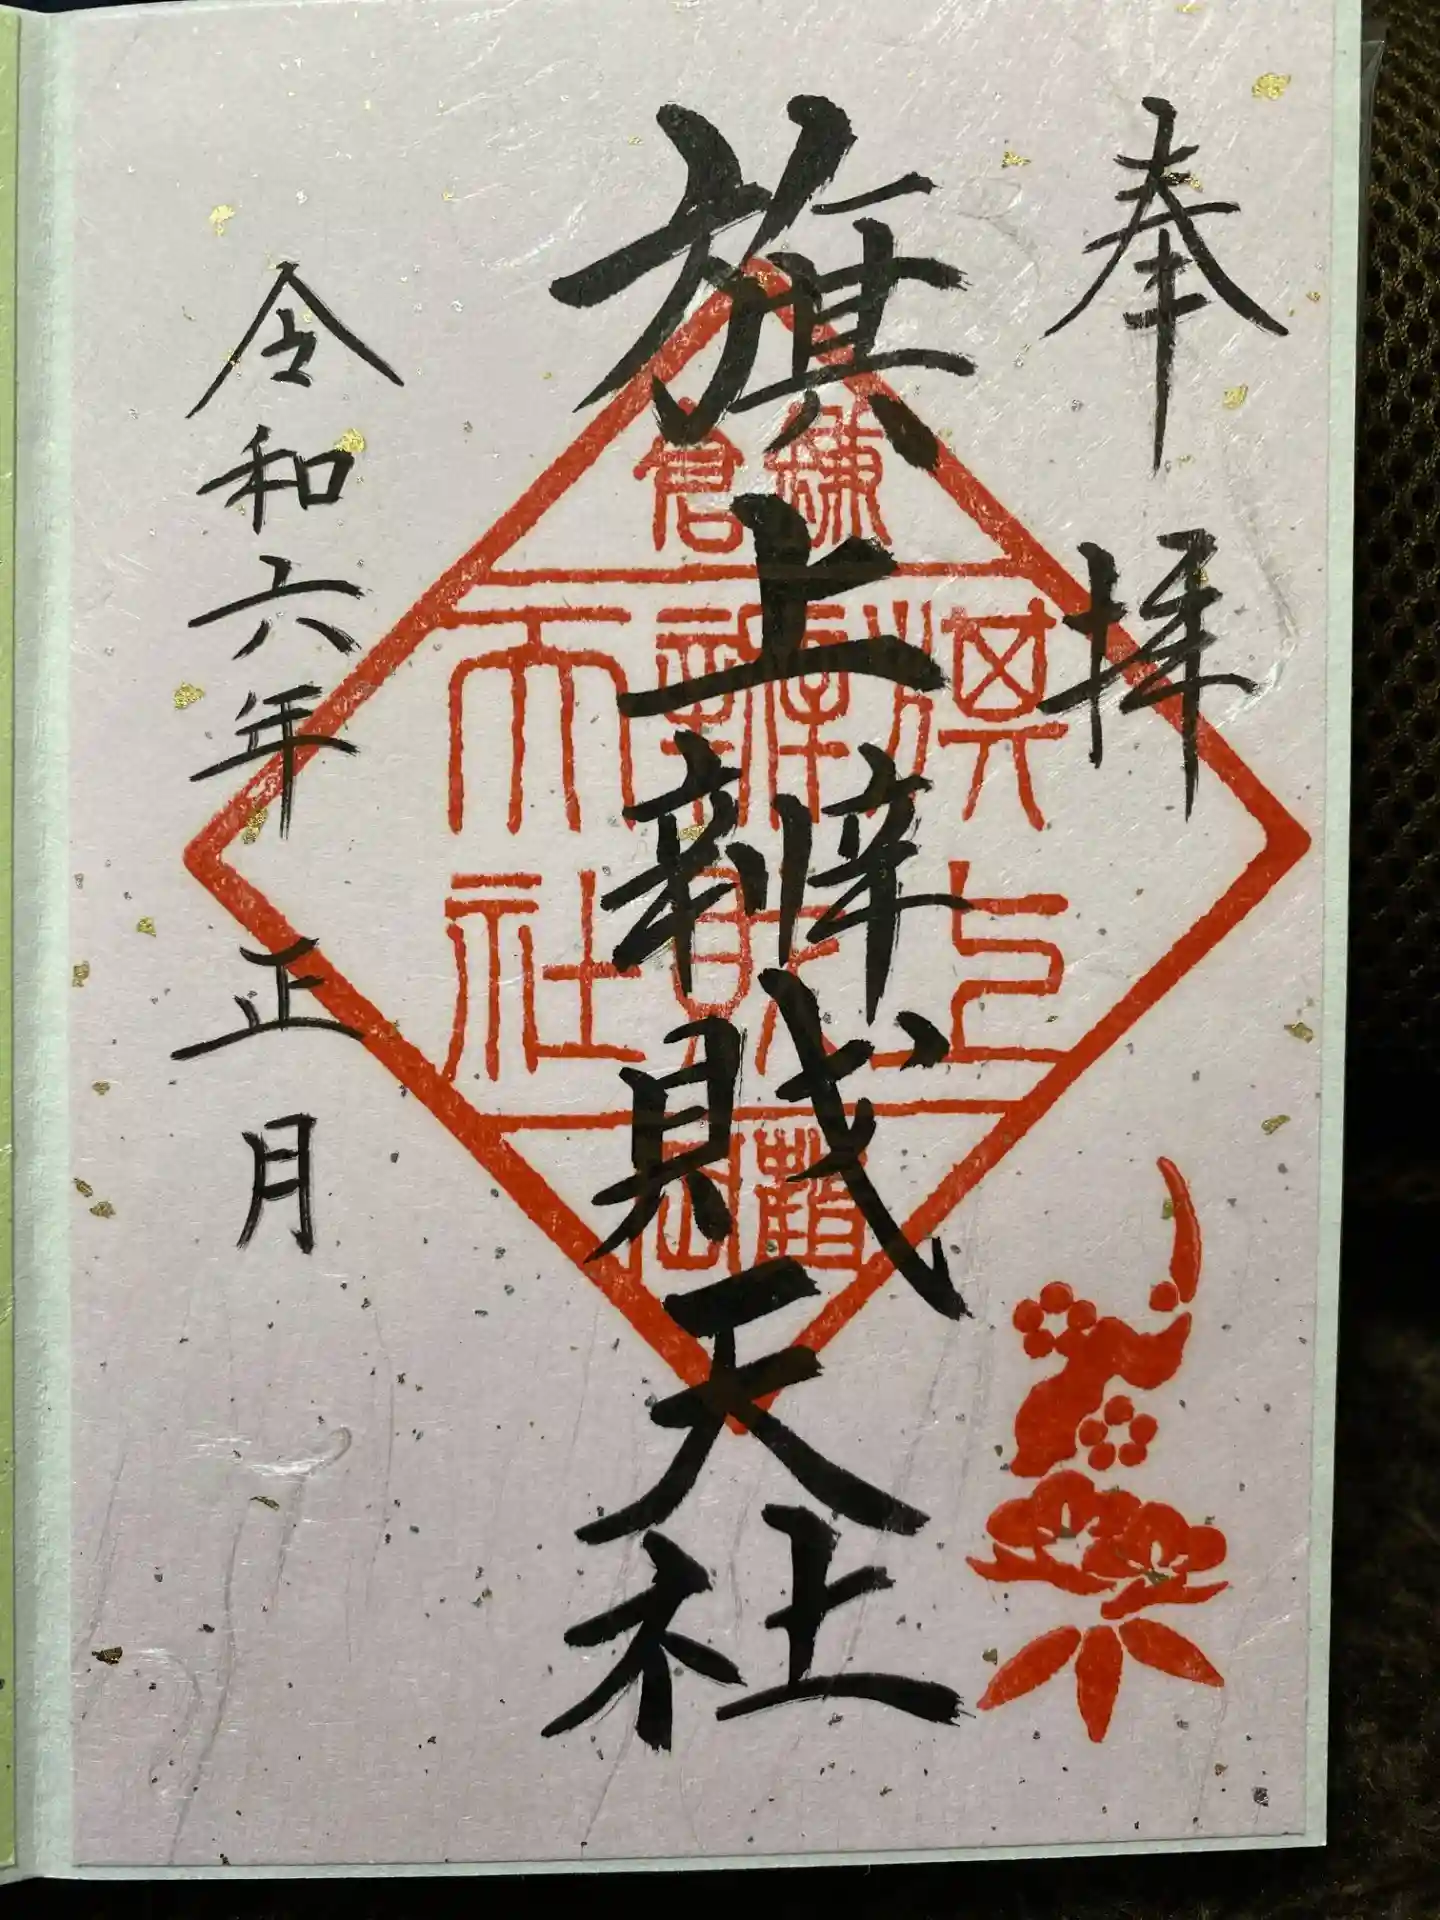 奉拝
旗上辨財天社
令和六年正月
鎌倉
旗上
辨財
天社
鶴岡